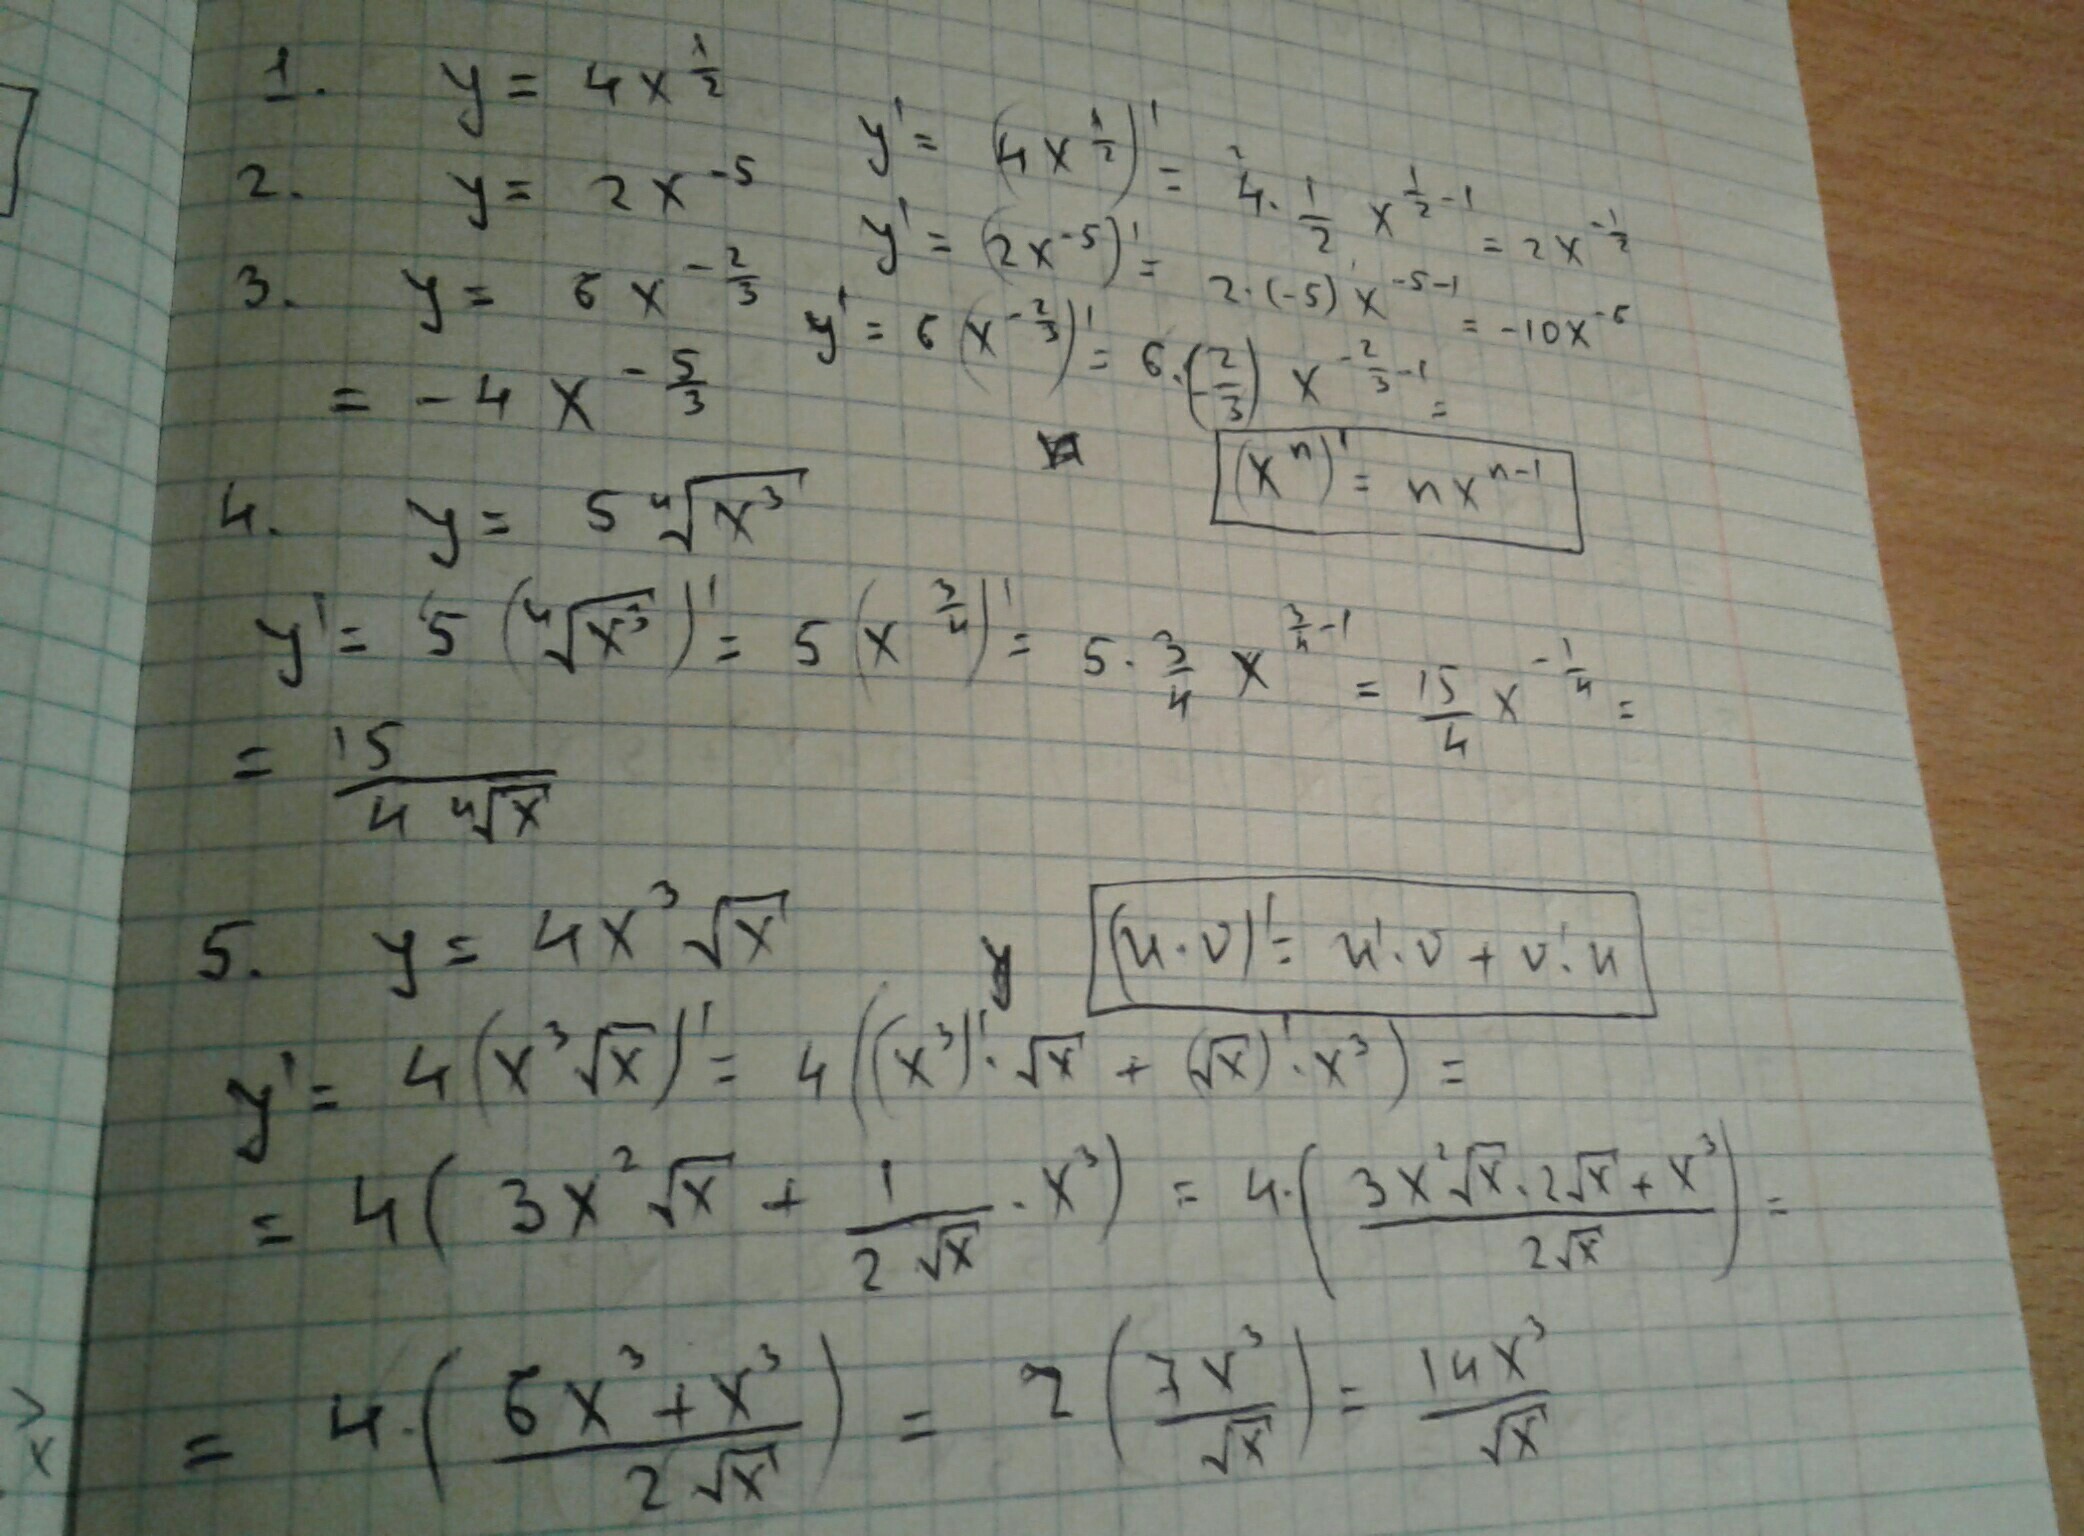 1. y = 4x^{1/2}   y' = (4x^{1/2})' = 4 · 1/2 x^{1/2 - 1} = 2x^{-1/2}
2. y = 2x^{-5}   y' = (2x^{-5})' = 2·(-5) x^{-5-1} = -10x^{-6}
3. y = 6x^{-2/3}   y' = 6(x^{-2/3})' = 6·(-2/3) x^{-2/3 - 1} =
= -4x^{-5/3}
(x^n)' = nx^{n-1}
4. y = 5 ⁴√(x³)
y' = 5 (⁴√(x³))' = 5 (x^{3/4})' = 5 · 3/4 x^{3/4 - 1} = 15/4 x^{-1/4} =
= 15/(4 ⁴√x)
5. y = 4x³√x   (u·v)' = u'·v + v'·u
y' = 4(x³√x)' = 4((x³)'·√x + (√x)'·x³) =
= 4(3x²√x + 1/(2√x) · x³) = 4·((3x²√x·2√x + x³)/(2√x)) =
= 4·((6x³ + x³)/(2√x)) = 2(7x³/√x) = 14x³/√x